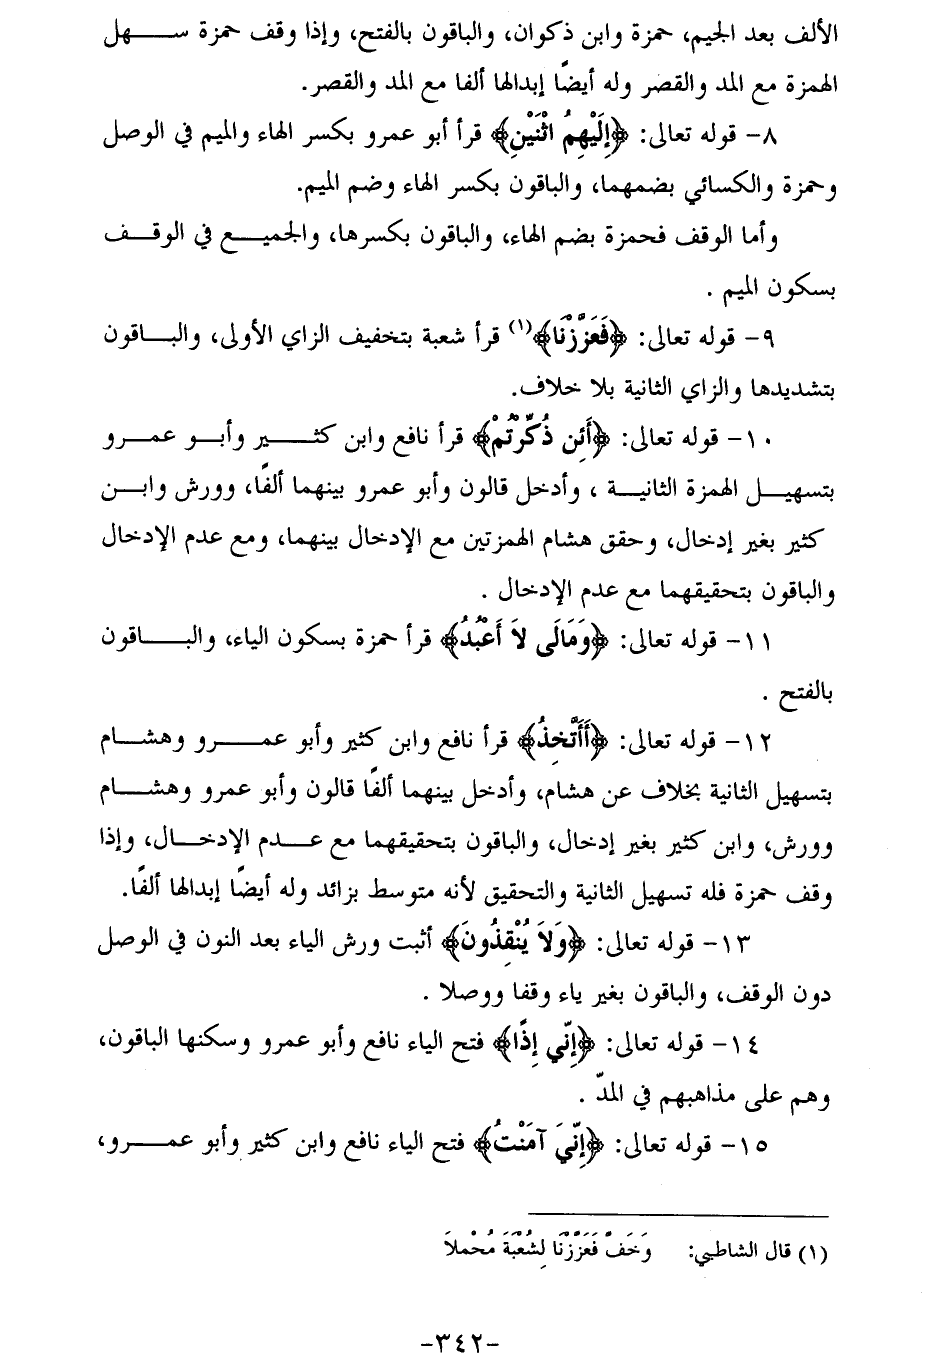 الألف بعد الجيم، حمزة وابن ذكوان، والباقون بالفتح، وإذا وقف حمزة سهل
الهمزة مع المد والقصر وله أيضًا إبدالها ألفا مع المد والقصر.
٨- قوله تعالى: ﴿إِلَيْهِمُ اثْنَيْنِ﴾ قرأ أبو عمرو بكسر الهاء والميم في الوصل
وحمزة والكسائي بضمهما، والباقون بكسر الهاء وضم الميم.
وأما الوقف فحمزة بضم الهاء، والباقون بكسرها، والجميع في الوقف
بسكون الميم .
٩- قوله تعالى: ﴿فَعَزَّزْنَا﴾(١) قرأ شعبة بتخفيف الزاي الأولى، والباقون
بتشديدها والزاي الثانية بلا خلاف.
١٠- قوله تعالى: ﴿أَئِن ذُكِّرْتُمْ﴾ قرأ نافع وابن كثير وأبو عمرو
بتسهيل الهمزة الثانية ، وأدخل قالون وأبو عمرو بينهما ألفًا، وورش وابن
كثير بغير إدخال، وحقق هشام الهمزتين مع الإدخال بينهما، ومع عدم الإدخال
والباقون بتحقيقهما مع عدم الإدخال .
١١- قوله تعالى: ﴿وَمَالَى لاَ أَعْبُدُ﴾ قرأ حمزة بسكون الياء، والباقون
بالفتح .
١٢- قوله تعالى: ﴿أَأَتَّخِذُ﴾ قرأ نافع وابن كثير وأبو عمرو وهشام
بتسهيل الثانية بخلاف عن هشام، وأدخل بينهما ألفًا قالون وأبو عمرو وهشام
وورش، وابن كثير بغير إدخال، والباقون بتحقيقهما مع عدم الإدخال، وإذا
وقف حمزة فله تسهيل الثانية والتحقيق لأنه متوسط بزائد وله أيضًا إبدالها ألفًا.
١٣- قوله تعالى: ﴿وَلاَ يُنْقِذُونَ﴾ أثبت ورش الياء بعد النون في الوصل
دون الوقف، والباقون بغير ياء وقفا ووصلا .
١٤- قوله تعالى: ﴿إِنّي إِذًا﴾ فتح الياء نافع وأبو عمرو وسكنها الباقون،
وهم على مذاهبهم في المدّ .
١٥- قوله تعالى: ﴿إِنّيَ آمَنْتُ﴾ فتح الياء نافع وابن كثير وأبو عمرو،
(١) قال الشاطبي: وَخَفَّ فَعَزَّزْنَا لِشُعْبَةَ مُحْمِلاَ
-٣٤٢-